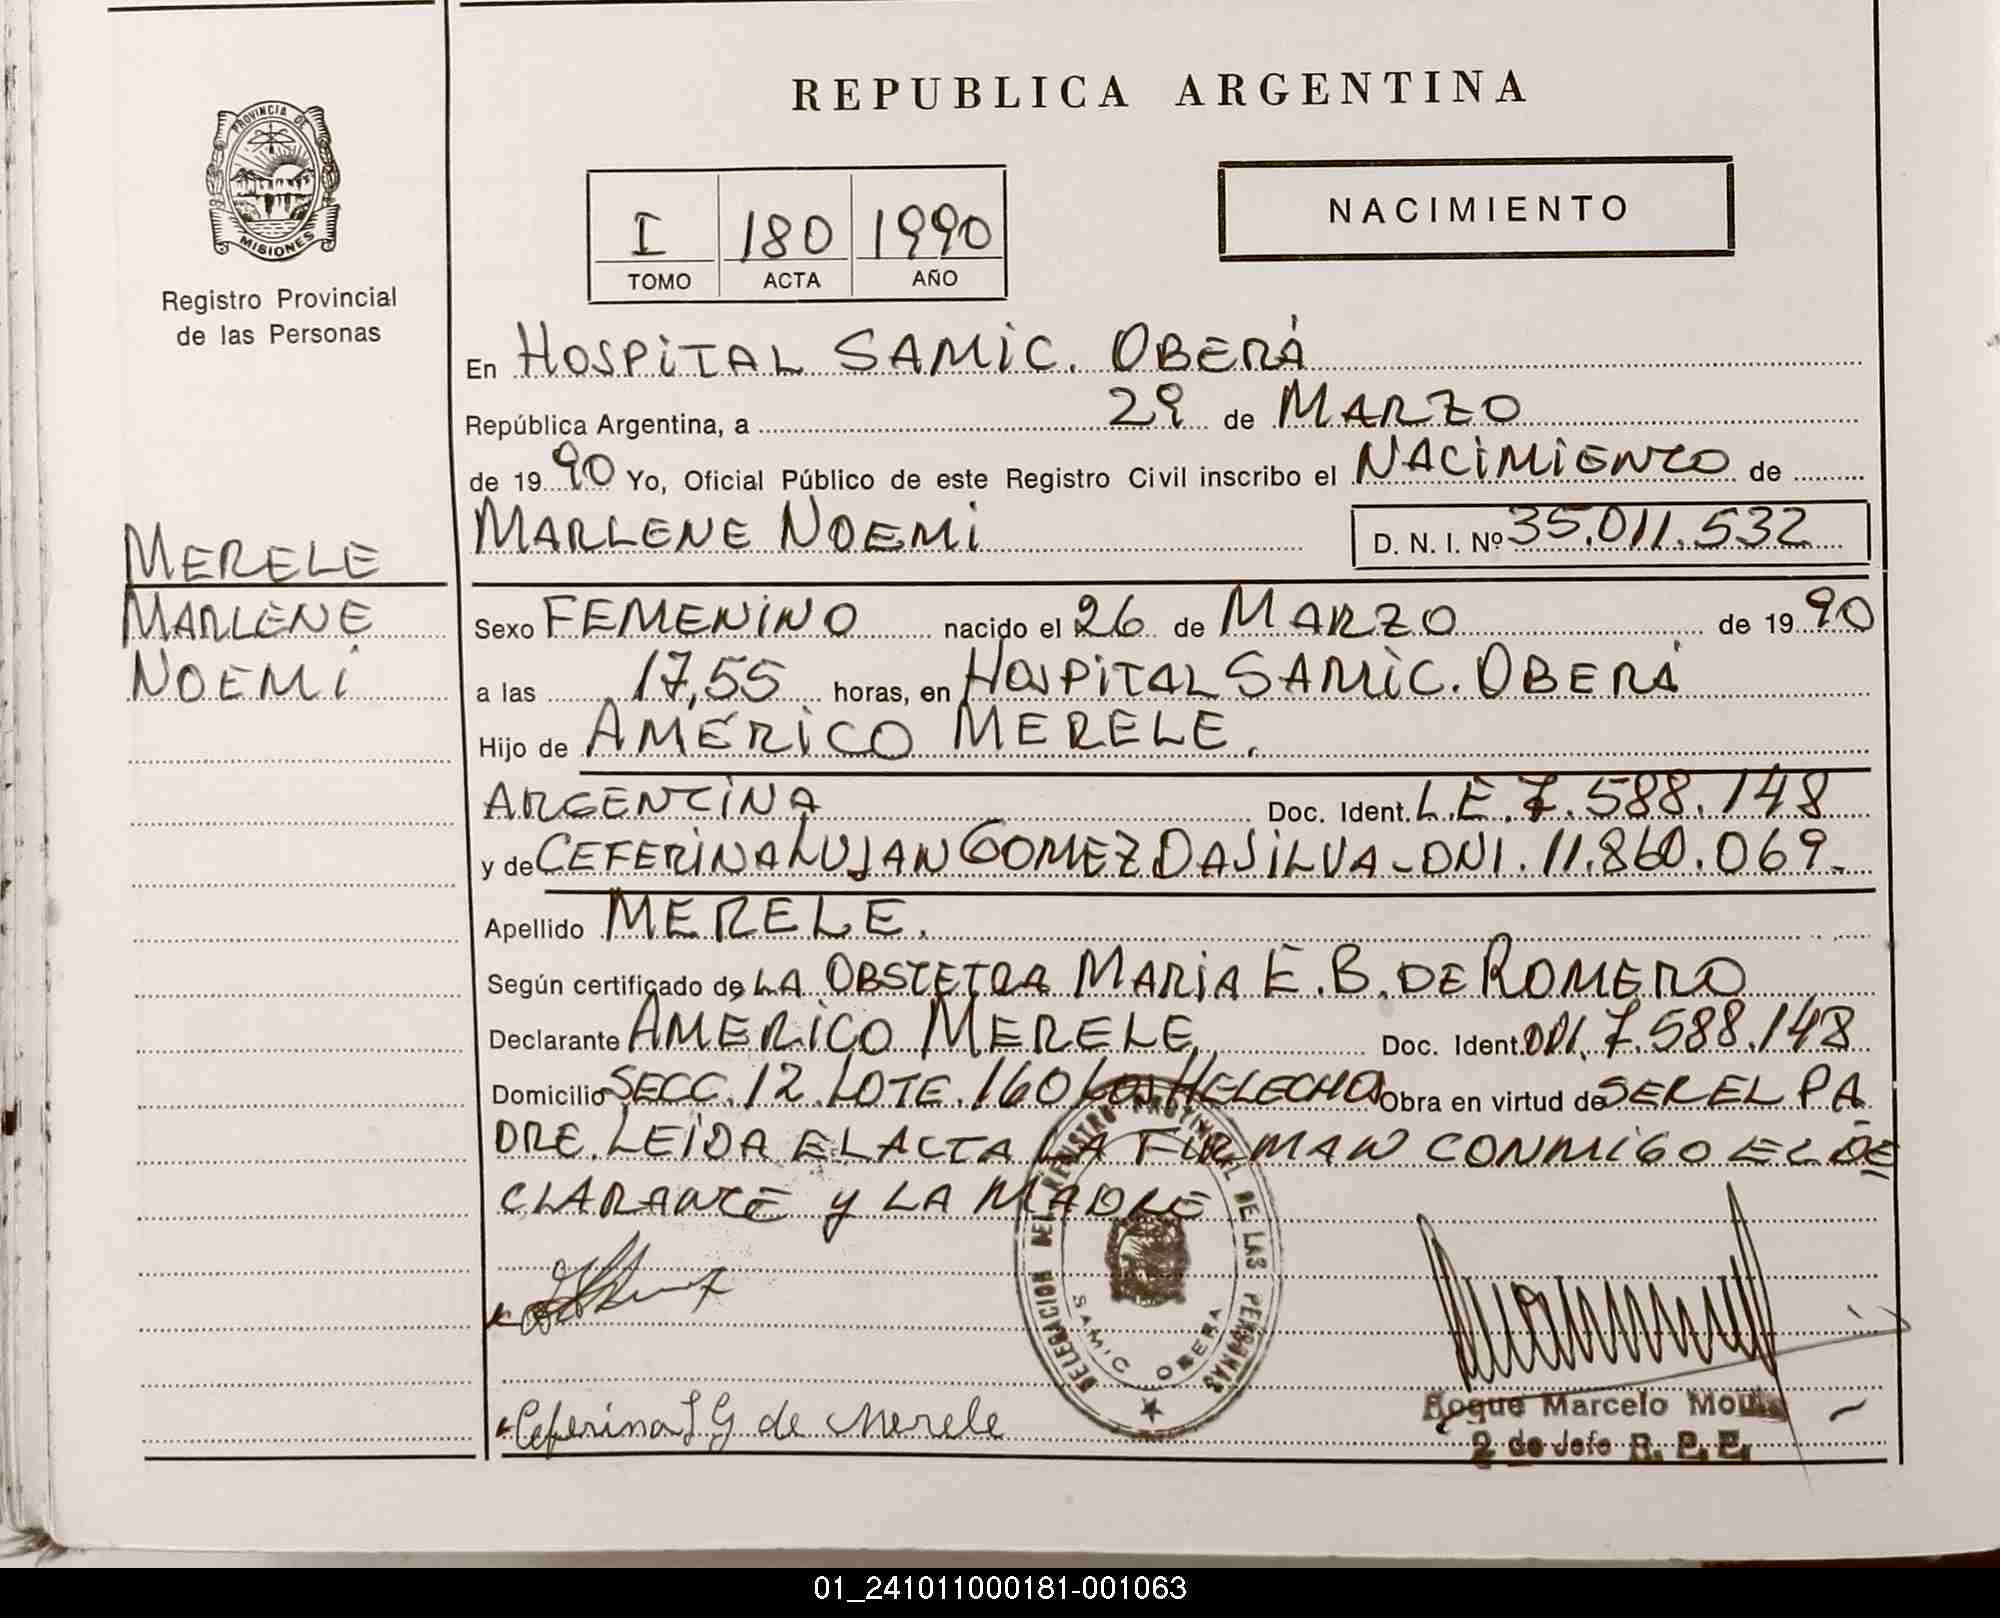 REPUBLICA ARGENTINA
PROVINCIA DE
MISIONES
Registro Provincial
de las Personas
I 180 1990
TOMO ACTA AÑO
NACIMIENTO
En HOSPITAL SAMIC. OBERÁ
República Argentina, a 29 de MARZO
de 1990 Yo, Oficial Público de este Registro Civil inscribo el NACIMIENTO de
MARLENE NOEMI D. N. I. Nº 35.011.532
MERELE
MARLENE
NOEMI
Sexo FEMENINO nacido el 26 de MARZO de 1990
a las 17,55 horas, en HOSPITAL SAMIC. OBERÁ
Hijo de AMÉRICO MERELE.
ARGENTINA Doc. Ident. L.E. 7.588.148
y de CEFERINA LUJAN GOMEZ DASILVA - DNI. 11.860.069.-
Apellido MERELE.
Según certificado de LA OBSTETRA MARIA E. B. DE ROMERO
Declarante AMÉRICO MERELE Doc. Ident. DNI. 7.588.148
Domicilio SECC. 12 LOTE. 160 LOS HELECHOS Obra en virtud de SER EL PA
DRE. LEIDA EL ACTA LA FIRMAN CONMIGO EL DE
CLARANTE Y LA MADRE
DELEGACION DEL REGISTRO PROVINCIAL DE LAS PERSONAS
SAMIC OBERA
Ceferina L G de Merele
Roque Marcelo
2 do Jefe R. P. P.
01_241011000181-001063